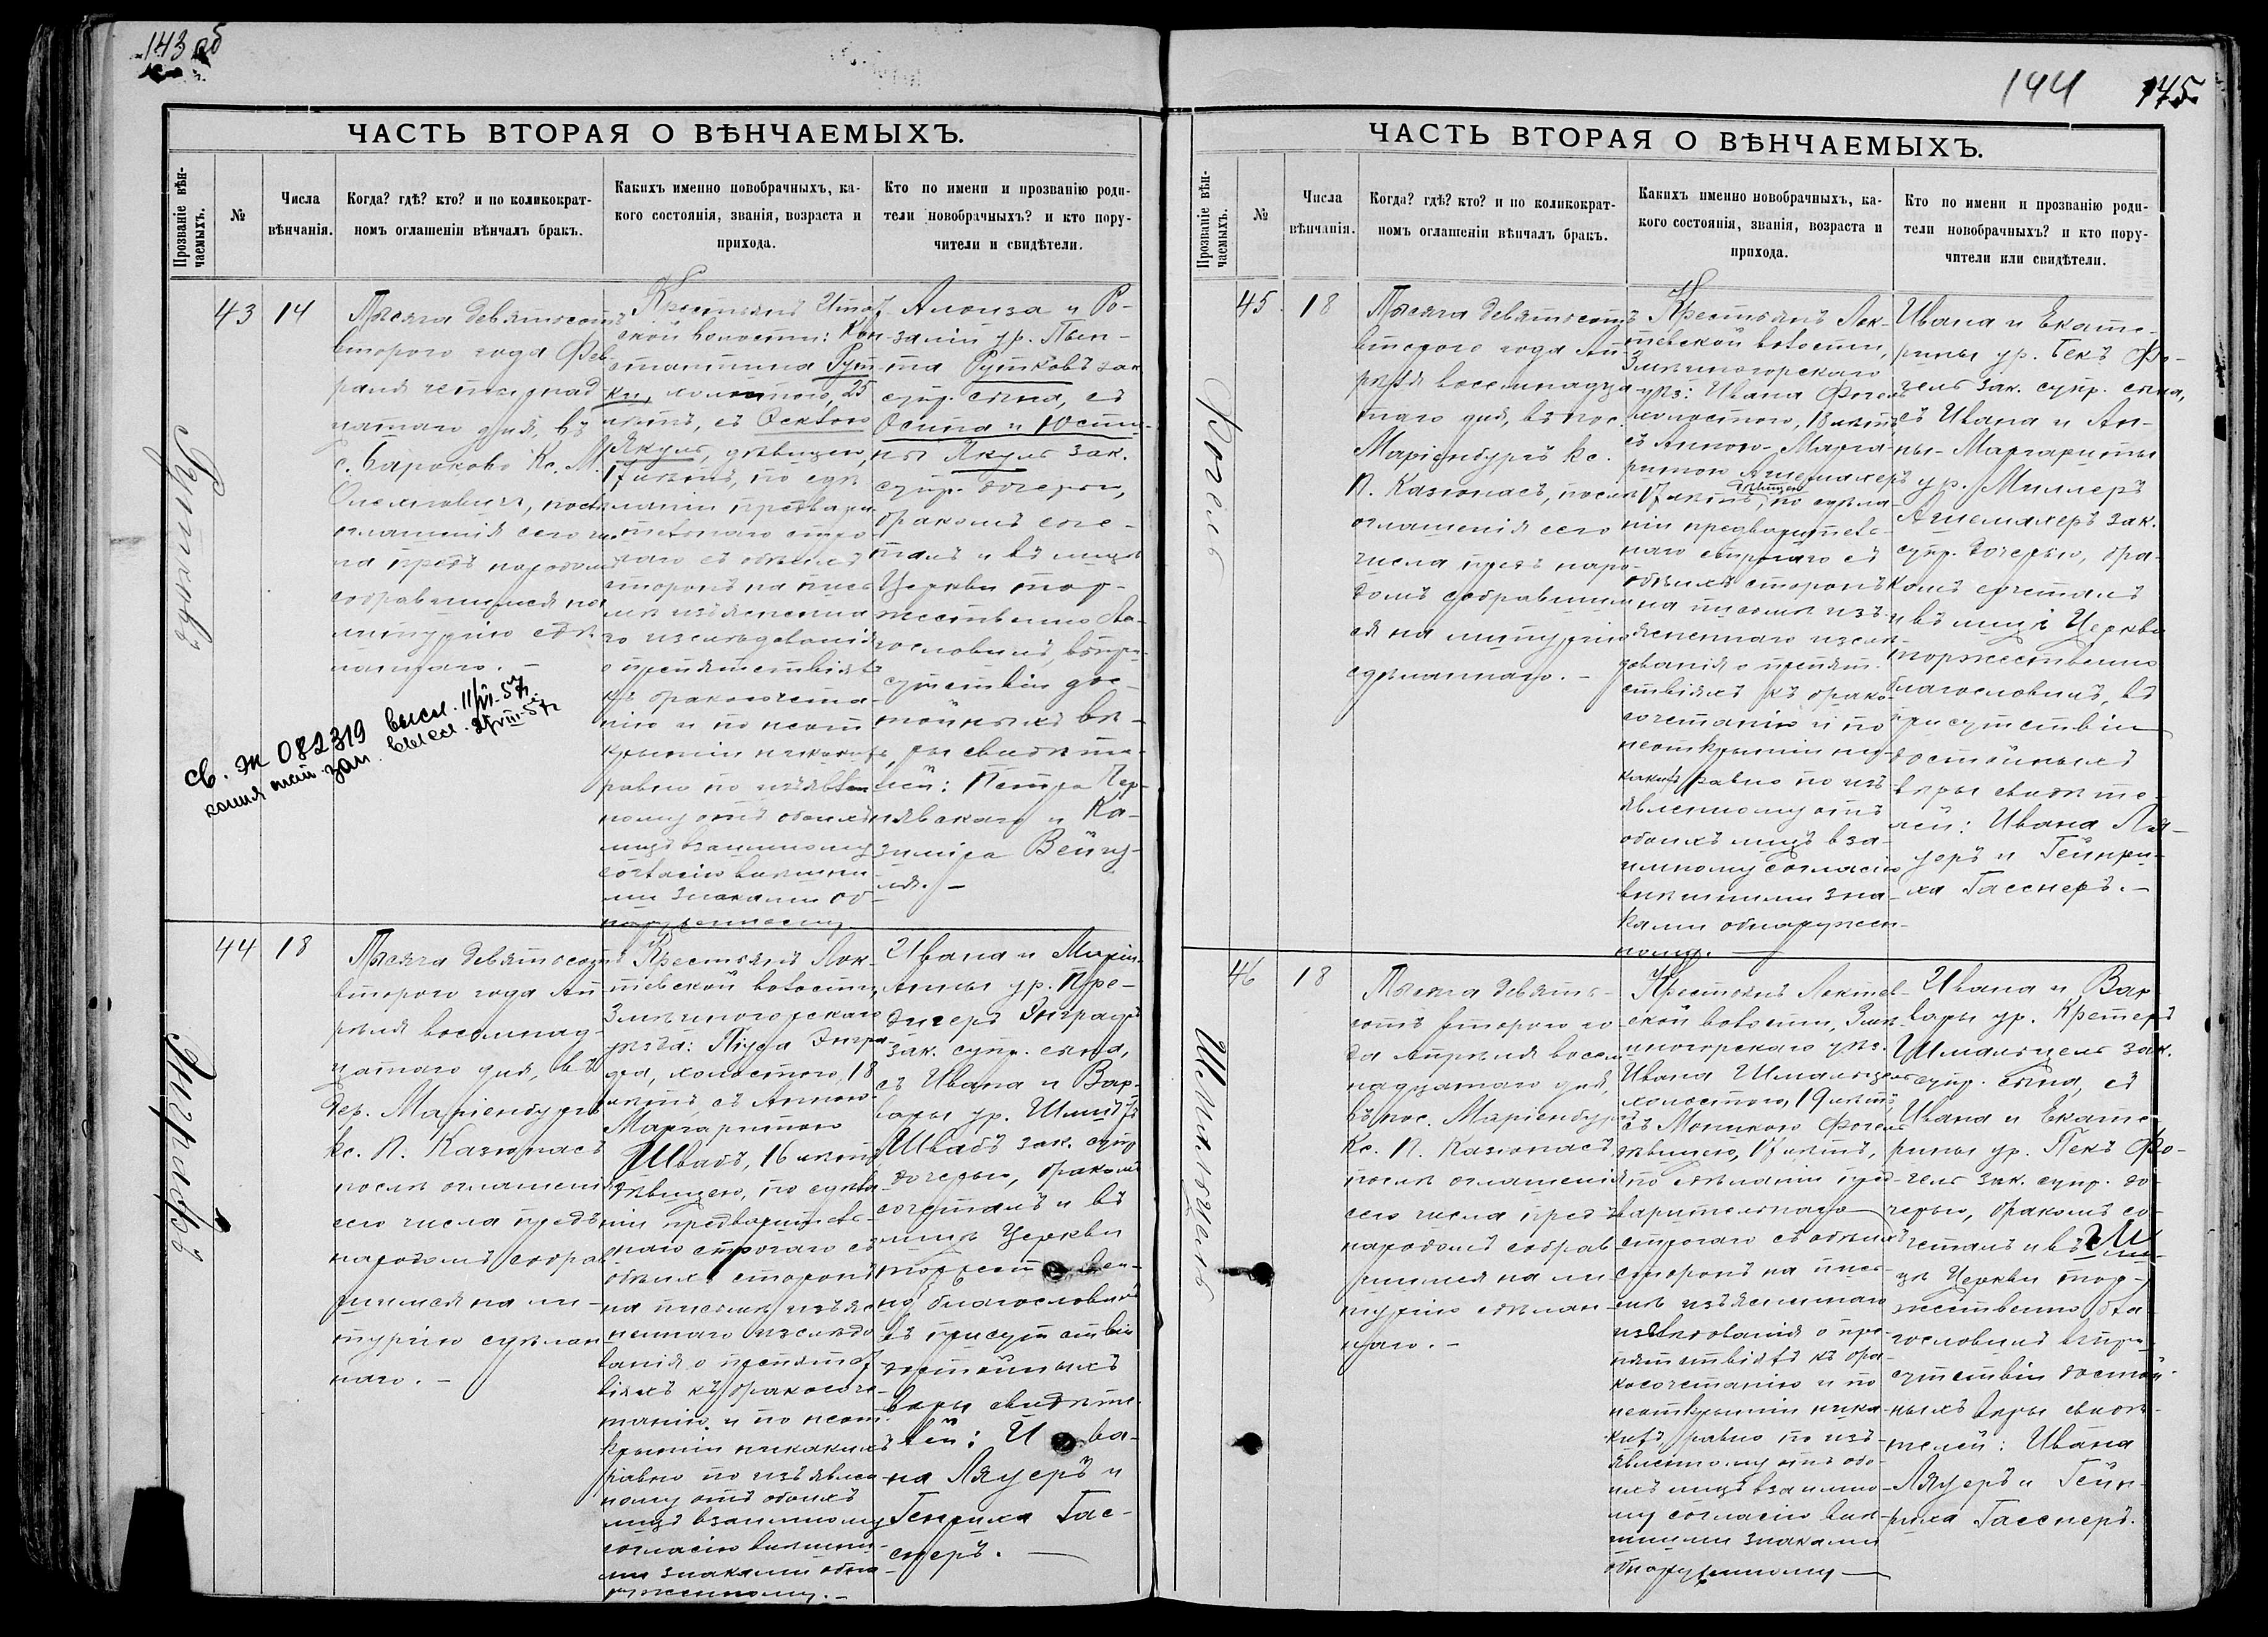 143 об
ЧАСТЬ ВТОРАЯ О ВѢНЧАЕМЫХЪ.
Прозваніе вѣн-
чаемыхъ.
№
Числа
вѣнчанія.
Когда? гдѣ? кто? и по коликократ-
номъ оглашеніи вѣнчалъ бракъ.
Какихъ именно новобрачныхъ, ка-
кого состоянія, званія, возраста и
прихода.
Кто по имени и прозванію роди-
тели новобрачныхъ? и кто пору-
чители и свидѣтели.
43
14
Тысяча девятьсотъ
второго года Фев
раля четырнад
цатаго дня, въ
с. Бароково Кс. М.
посл
оглашенія сего чи
на предъ народомъ
собравшемся на
литургію сдѣ
ланнаго. –
св. ж 082319 высл. 11/VI-57г.
копия зап. высл.
Крестьянъ
ской волости: Кон
стантина Рут
ку, холостого, 25
лѣтъ, съ
Якуль, дѣвицею,
17 лѣтъ, по сдѣ
ланіи предвари
тельнаго стро
гаго съ обѣихъ
сторонъ на пись
мѣ изъясненна
го изслѣдованія
о препятствіяхъ
къ бракосочета
нію и по неот
крытіи никакихъ
равно по изъявлен
ному отъ обоихъ
лицъ взаимному
согласію внѣшни
ми знаками об
наруженному
Алоиза и Ро-
заліи ур.
та Рутковъ зак
супр. сына, съ
Осипа и Юсти-
ны Якуль зак.
супр. дочерью,
бракомъ соче-
талъ и въ лицѣ
Церкви тор-
жественно бла-
гословилъ, въ при-
сутствіи дос-
тойныхъ вѣ-
ры свидѣте-
лей: Петра Чер-
нявскаго и Ка-
зиміра Вейцу-
ля. –
44
18
Энграфъ
Тысяча девятьсотъ
второго года Ап
рѣля восемнад-
цатаго дня, въ
дер. Маріенбургъ
Кс. П. Казюнасъ
послѣ оглашенія
сего числа предъ
народомъ собрав
шимся на ли-
тургію сдѣлан
наго. –
Крестьянъ Лок-
тевской волости,
Змѣиногорскаго
уѣзда: Піуса Энгра
фа, холостого, 18
лѣтъ, съ Анною-
Маргаритою
Швабъ, 16 лѣтъ
дѣвицею, по сдѣла
ніи предваритель-
наго строгаго съ
обѣихъ сторонъ
на письмѣ изъяс
неннаго изслѣдо
ванія о препятст
віяхъ къ бракосоче-
танію и по неот
крытіи никакихъ
равно по изъявлен
ному отъ обоихъ
лицъ взаимному
согласію внѣшни-
ми знаками обна-
руженному. –
Ивана и Маріи-
Анны ур. Пре-
дигеръ Энграфъ
зак. супр. сына,
съ Ивана и Вар-
вары ур. Шмидтъ
Швабъ зак. супр
дочерью, бракомъ
сочеталъ и въ
лицѣ Церкви
торжествен-
но благословилъ
въ присутствіи
достойныхъ
вѣры свидѣте-
лей: Ива-
на Ляуеръ и
Генриха Гас-
снеръ. –
144 145
ЧАСТЬ ВТОРАЯ О ВѢНЧАЕМЫХЪ.
Прозваніе вѣн-
чаемыхъ.
№
Числа
вѣнчанія.
Когда? гдѣ? кто? и по коликократ-
номъ оглашеніи вѣнчалъ бракъ.
Какихъ именно новобрачныхъ, ка-
кого состоянія, званія, возраста и
прихода.
Кто по имени и прозванію роди-
тели новобрачныхъ? и кто пору-
чители или свидѣтели.
45.
18
Фогель
Тысяча девятьсотъ
второго года Ап
рѣля восемнадца
таго дня, въ пос.
Маріенбургъ Кс.
П. Казюнасъ, послѣ
оглашенія сего
числа предъ наро-
домъ собравшим
ся на литургію
сдѣланнаго. –
Крестьянъ Лок-
тевской волости,
Змѣиногорскаго
уѣз: Ивана Фогель
холостого, 18 лѣтъ,
съ Анною-Марга
ритою Ашемахеръ
дѣвицею
17 лѣтъ, по сдѣла
ніи предваритель-
наго строгаго съ
обѣихъ сторонъ
на письмѣ изъ-
ясненнаго изслѣ
дованія о препят-
ствіяхъ къ брако-
сочетанію и по
неоткрытіи ни-
какихъ равно по изъ
явленному отъ
обоихъ лицъ вза-
имному согласію
внѣшними зна-
ками обнаружен-
ному. –
Ивана и Екате-
рины ур. Бекъ Фо-
гель зак. супр. сына,
съ Ивана и Ан-
ны-Маргариты
ур. Миллеръ
Ашемахеръ зак.
супр. дочерью, бра-
комъ сочеталъ
и въ лицѣ Церкви
торжественно
благословилъ, въ
присутствіи
достойныхъ
вѣры свидѣте-
лей: Ивана Ля-
уеръ и Гейнри-
ха Гасснеръ. –
46
18
Шмальцель
Тысяча девять-
сотъ второго го
да Апрѣля восем
надцатаго дня,
въ пос. Маріенбургъ
Кс. П. Казюнасъ
послѣ оглашенія
сего числа предъ
народомъ собрав
шимся на ли
тургію сдѣлан
наго. –
Крестьянъ Локтев-
ской волости, Змѣ-
иногорскаго уѣз.
Ивана Шмальцель
холостого, 19 лѣтъ,
съ Моникою Фогель
дѣвицею, 17 лѣтъ,
по сдѣланіи пред
варительнаго
строгаго съ обѣихъ
сторонъ на пись-
мѣ изъясненнаго
изслѣдованія о пре-
пятствіяхъ къ бра-
косочетанію и по
неоткрытіи ника-
кихъ, равно по изъ-
явленному отъ обо-
ихъ лицъ взаимно-
му согласію внѣ-
шними знаками
обнаруженному –
Ивана и Вар
вары ур. Кремеръ
Шмальцель зак.
супр. сына, съ
Ивана и Екате-
рины ур. Пекъ Фо-
гель зак. супр. до-
черью, бракомъ со-
четалъ и въ ли-
цѣ Церкви тор-
жественно бла-
гословилъ въ при-
сутствіи достой-
ныхъ вѣры свидѣ-
телей: Ивана
Ляуеръ и Гейн-
риха Гасснеръ.